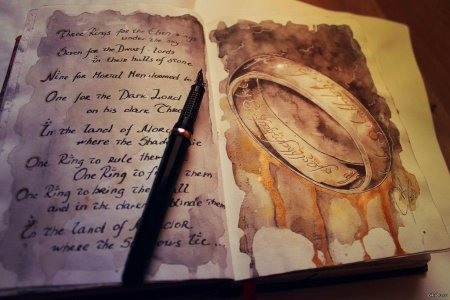 Three Rings for the Elven
under the sky
Seven for the Dwarf-lords
in their halls of stone
Nine for Mortal Men doomed to
One for the Dark Lord
on his dark Thro
In the land of Mordor
where the Shad
One Ring to rule them
One Ring to f them
One Ring to bring the all
and in the dark inde them
In the land of Mordor
where the S ows lie...